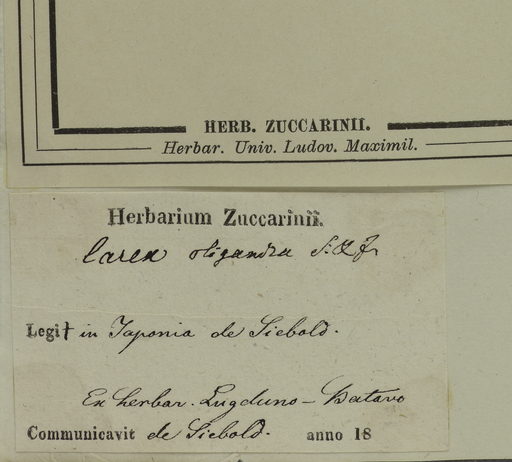 HERB. ZUCCARINII.
Herbar. Univ. Ludov. Maximil.
Herbarium Zuccarinii.
Carex oligandra S. & Z.
Legit in Japonia de Siebold.
Ex herbar. Lugduno-Batavo
Communicavit de Siebold. anno 18